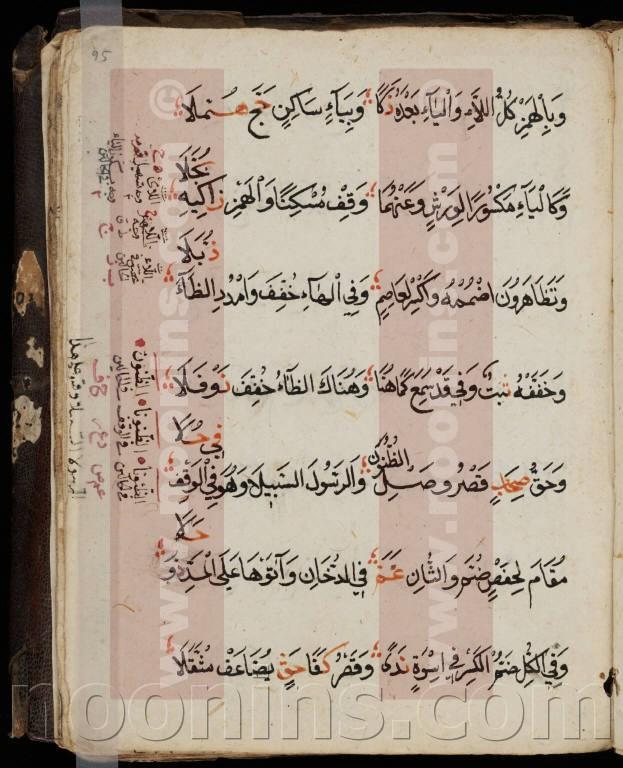 95
وَبِالْهَمْزِ كُلُّ اللَّاءِ وَالْيَاءِ بَعْدَهُ ذَكَا وَبِيَاءٍ سَاكِنٍ حَجَّ هُمَّلَا
وَكَالْيَاءِ مَكْسُورًا لِوَرْشٍ وَعَنْهُمَا وَقِفْ مُسْكِنًا وَالْهَمْزُ زَاكِيهِ بُجِّلَا
وَتَظَّاهَرُونَ اضْمُمْهُ وَاكْسِرْ لِعَاصِمٍ وَفِي الْهَاءِ خَفِّفْ وَامْدُدِ الظَّاءَ ذُبَّلَا
وَخَفَّفَهُ ثَبْتٌ وَفِي قَدْ سَمِعْ كَمَا هُنَا وَهُنَاكَ الظَّاءُ خُفِّفَ نَوْفَلَا
وَحَقُّ صِحَابٍ قَصْرُ وَصْلِ الظُّنُونَ وَالرَّسُولَ السَّبِيلَا وَهُوَ فِي الْوَقْفِ فِي حُلَا
مَقَامَ لِحَفْصٍ ضُمَّ وَالثَّانِ عَمَّ فِي الدُّخَانِ وَآتَوْهَا عَلَى الْمَدِّ ذُو حَلَا
وَفِي الْكُلِّ ضَمُّ الْكَسْرِ فِي إِسْوَةٍ نَدًى وَقَصْرُ كِفَا حَقٍّ يُضَاعَفْ مُثَقَّلَا
الظنونا الظنونا الظنون
www.noonins.com
www.noonins.com
noonins.com